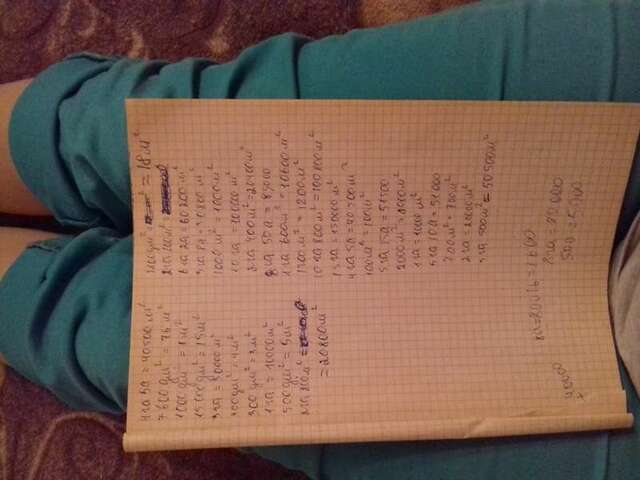 4 га 5а = 40500 м²
7600 дм² = 76 м²
1000 дм² = 1м²
15000 дм² = 15м²
3 га = 30000 м²
400 дм² = 4м²
300 дм² = 3м²
1 га = 10000 м²
500 дм² = 5м²
2 га 800 м² =
= 20800 м²
= 18 м²
2 га
6 га 2а = 60200 м²
3 га 8а = 30800 м²
1000 м² = 1000 м²
10 га = 100000 м²
2 га 400 м² = 20400 м²
8 га 50а = 85000
1 га 600 м² = 10600 м²
1200 м² = 1200 м²
10 га 800 м² = 100800 м²
15 га = 150000 м²
4 га 5а = 40500 м²
100 м² = 100 м²
5 га 15а = 51500
2000 м² = 2000 м²
1 га = 10000 м²
5 га 10а = 51000
700 м² = 700 м²
2 га = 20000 м²
5 га 500 м² = 50500 м²
8а = 800
8 га = 80000
50а = 5000